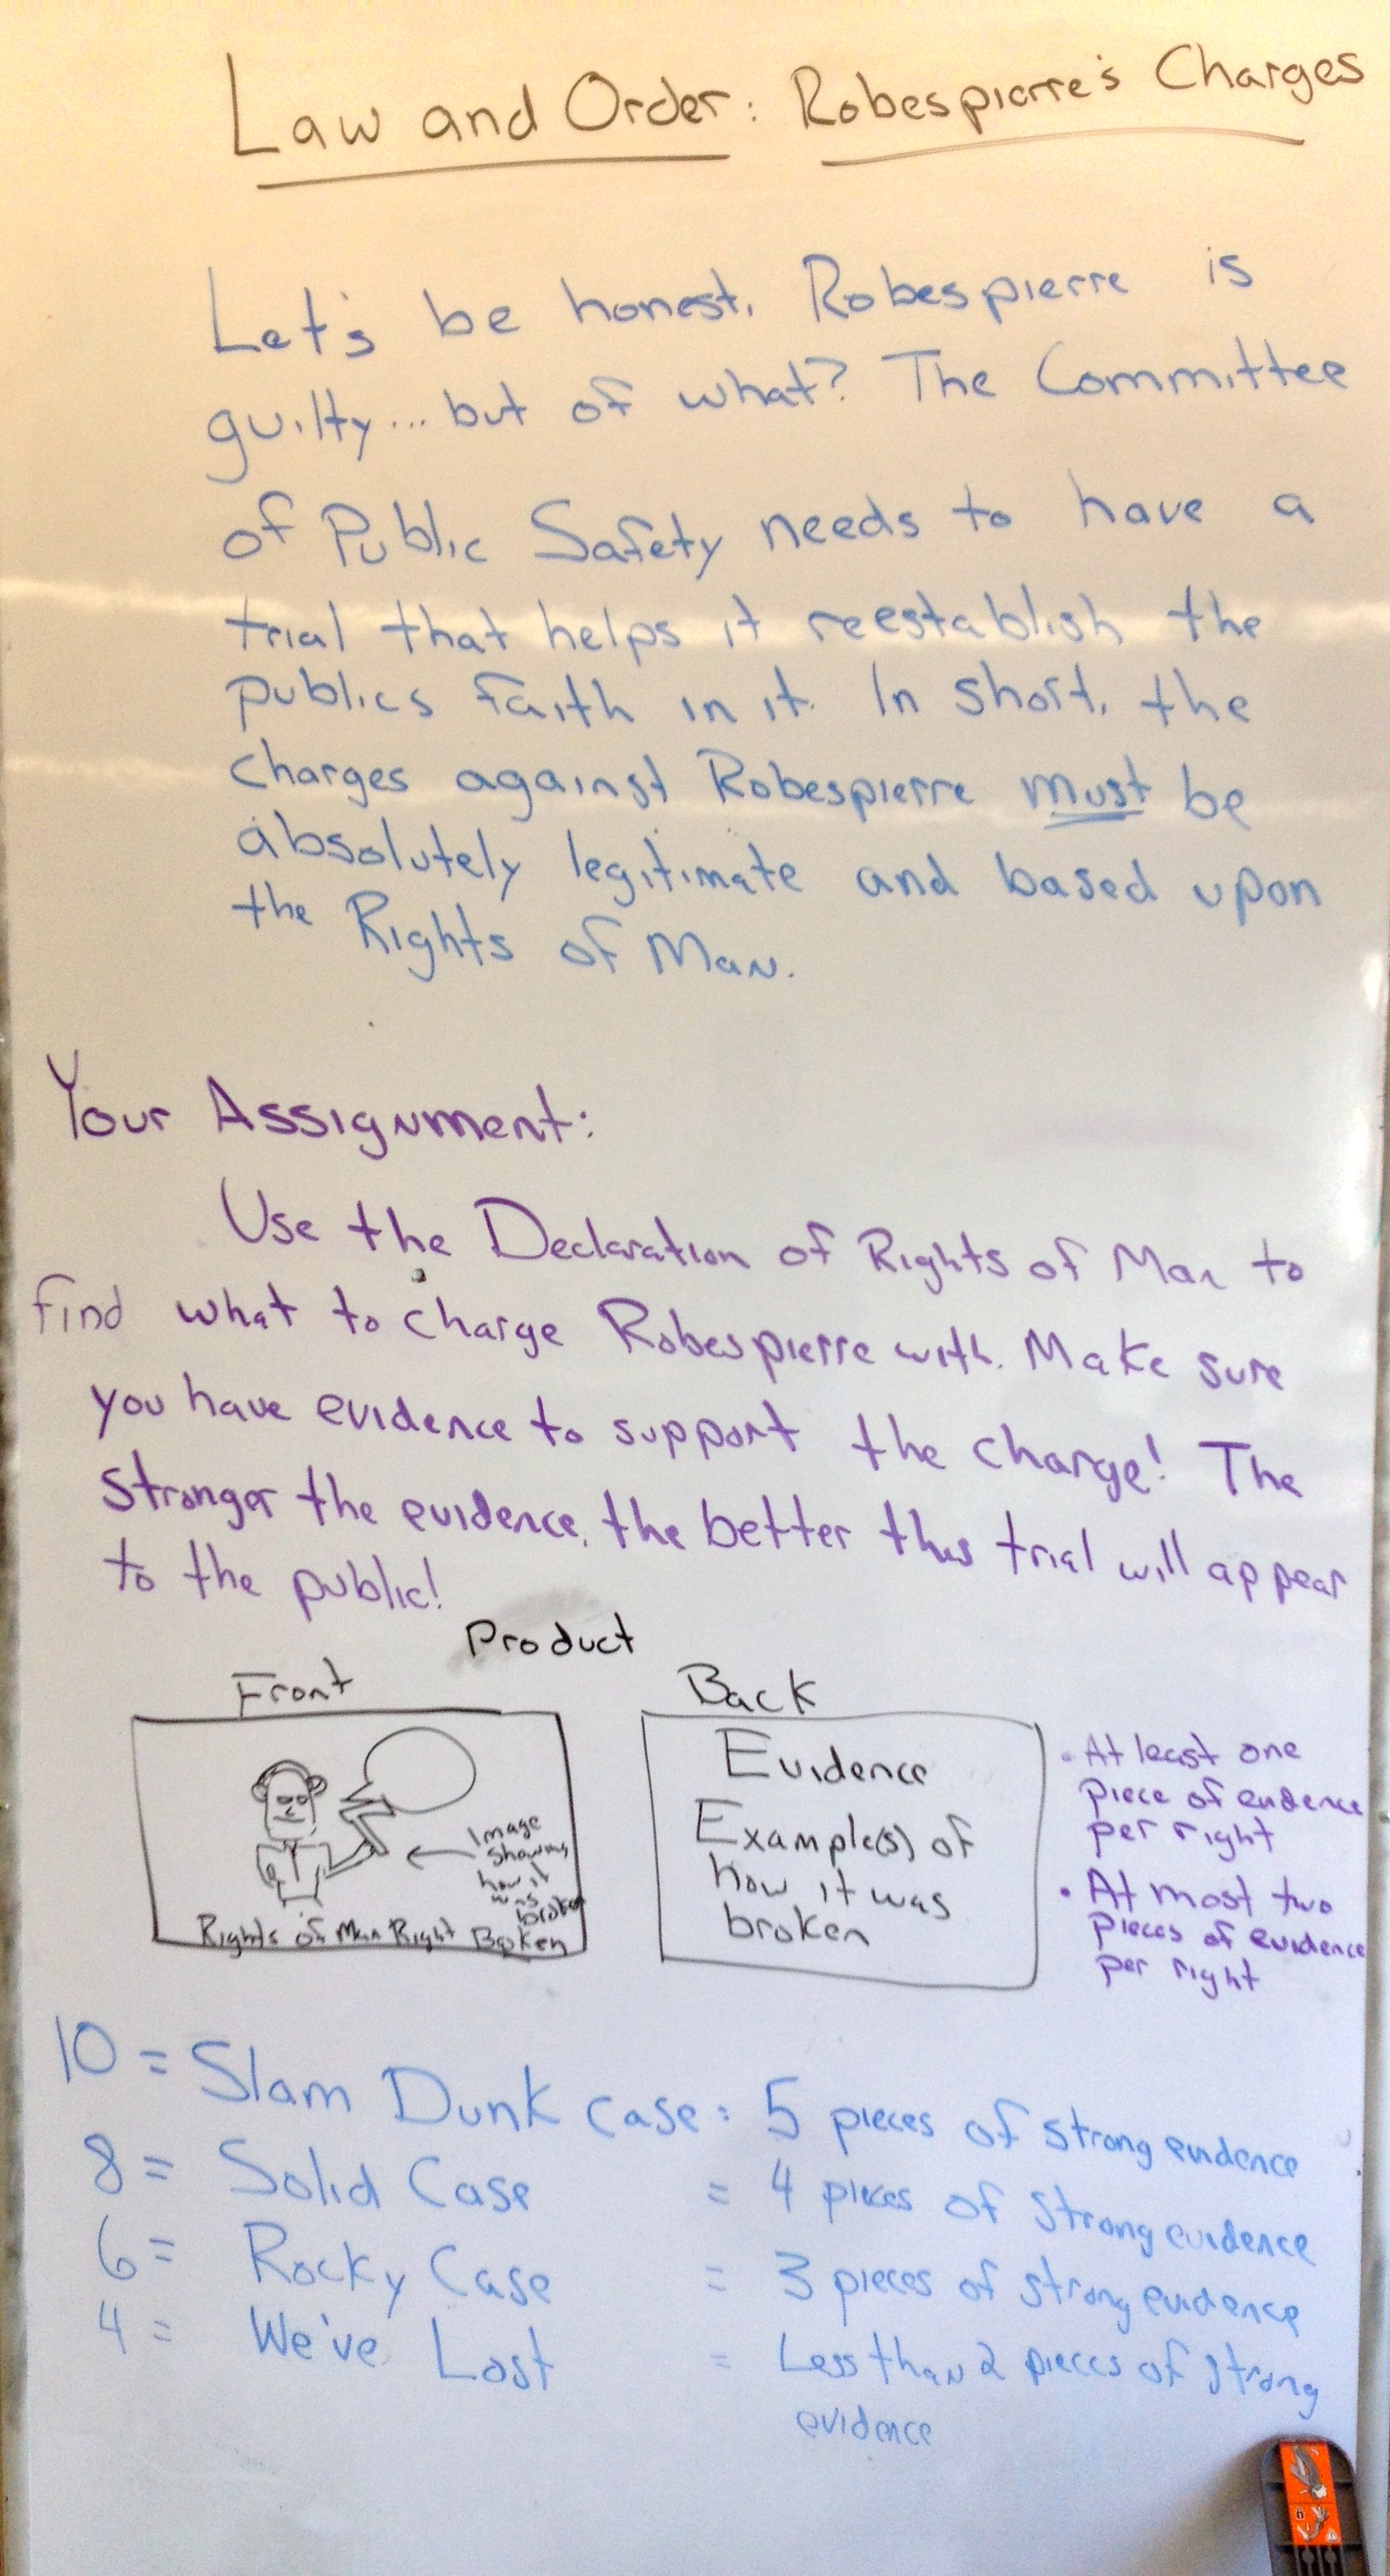 Law and Order: Robespierre's Charges
Let's be honest, Robespierre is
guilty... but of what? The Committee
of Public Safety needs to have a
trial that helps it reestablish the
publics faith in it. In short, the
charges against Robespierre must be
absolutely legitimate and based upon
the Rights of Man.
Your Assignment:
Use the Declaration of Rights of Man to
find what to charge Robespierre with. Make sure
you have evidence to support the charge! The
stronger the evidence, the better this trial will appear
to the public!
Product
Front
Image
showing
how it
was
broken
Rights of Man Right Broken
Back
Evidence
Example(s) of
how it was
broken
• At least one
piece of evidence
per right
• At most two
pieces of evidence
per right
10 = Slam Dunk Case: 5 pieces of strong evidence
8 = Solid Case = 4 pieces of strong evidence
6 = Rocky Case = 3 pieces of strong evidence
4 = We've Lost = Less than 2 pieces of strong
evidence